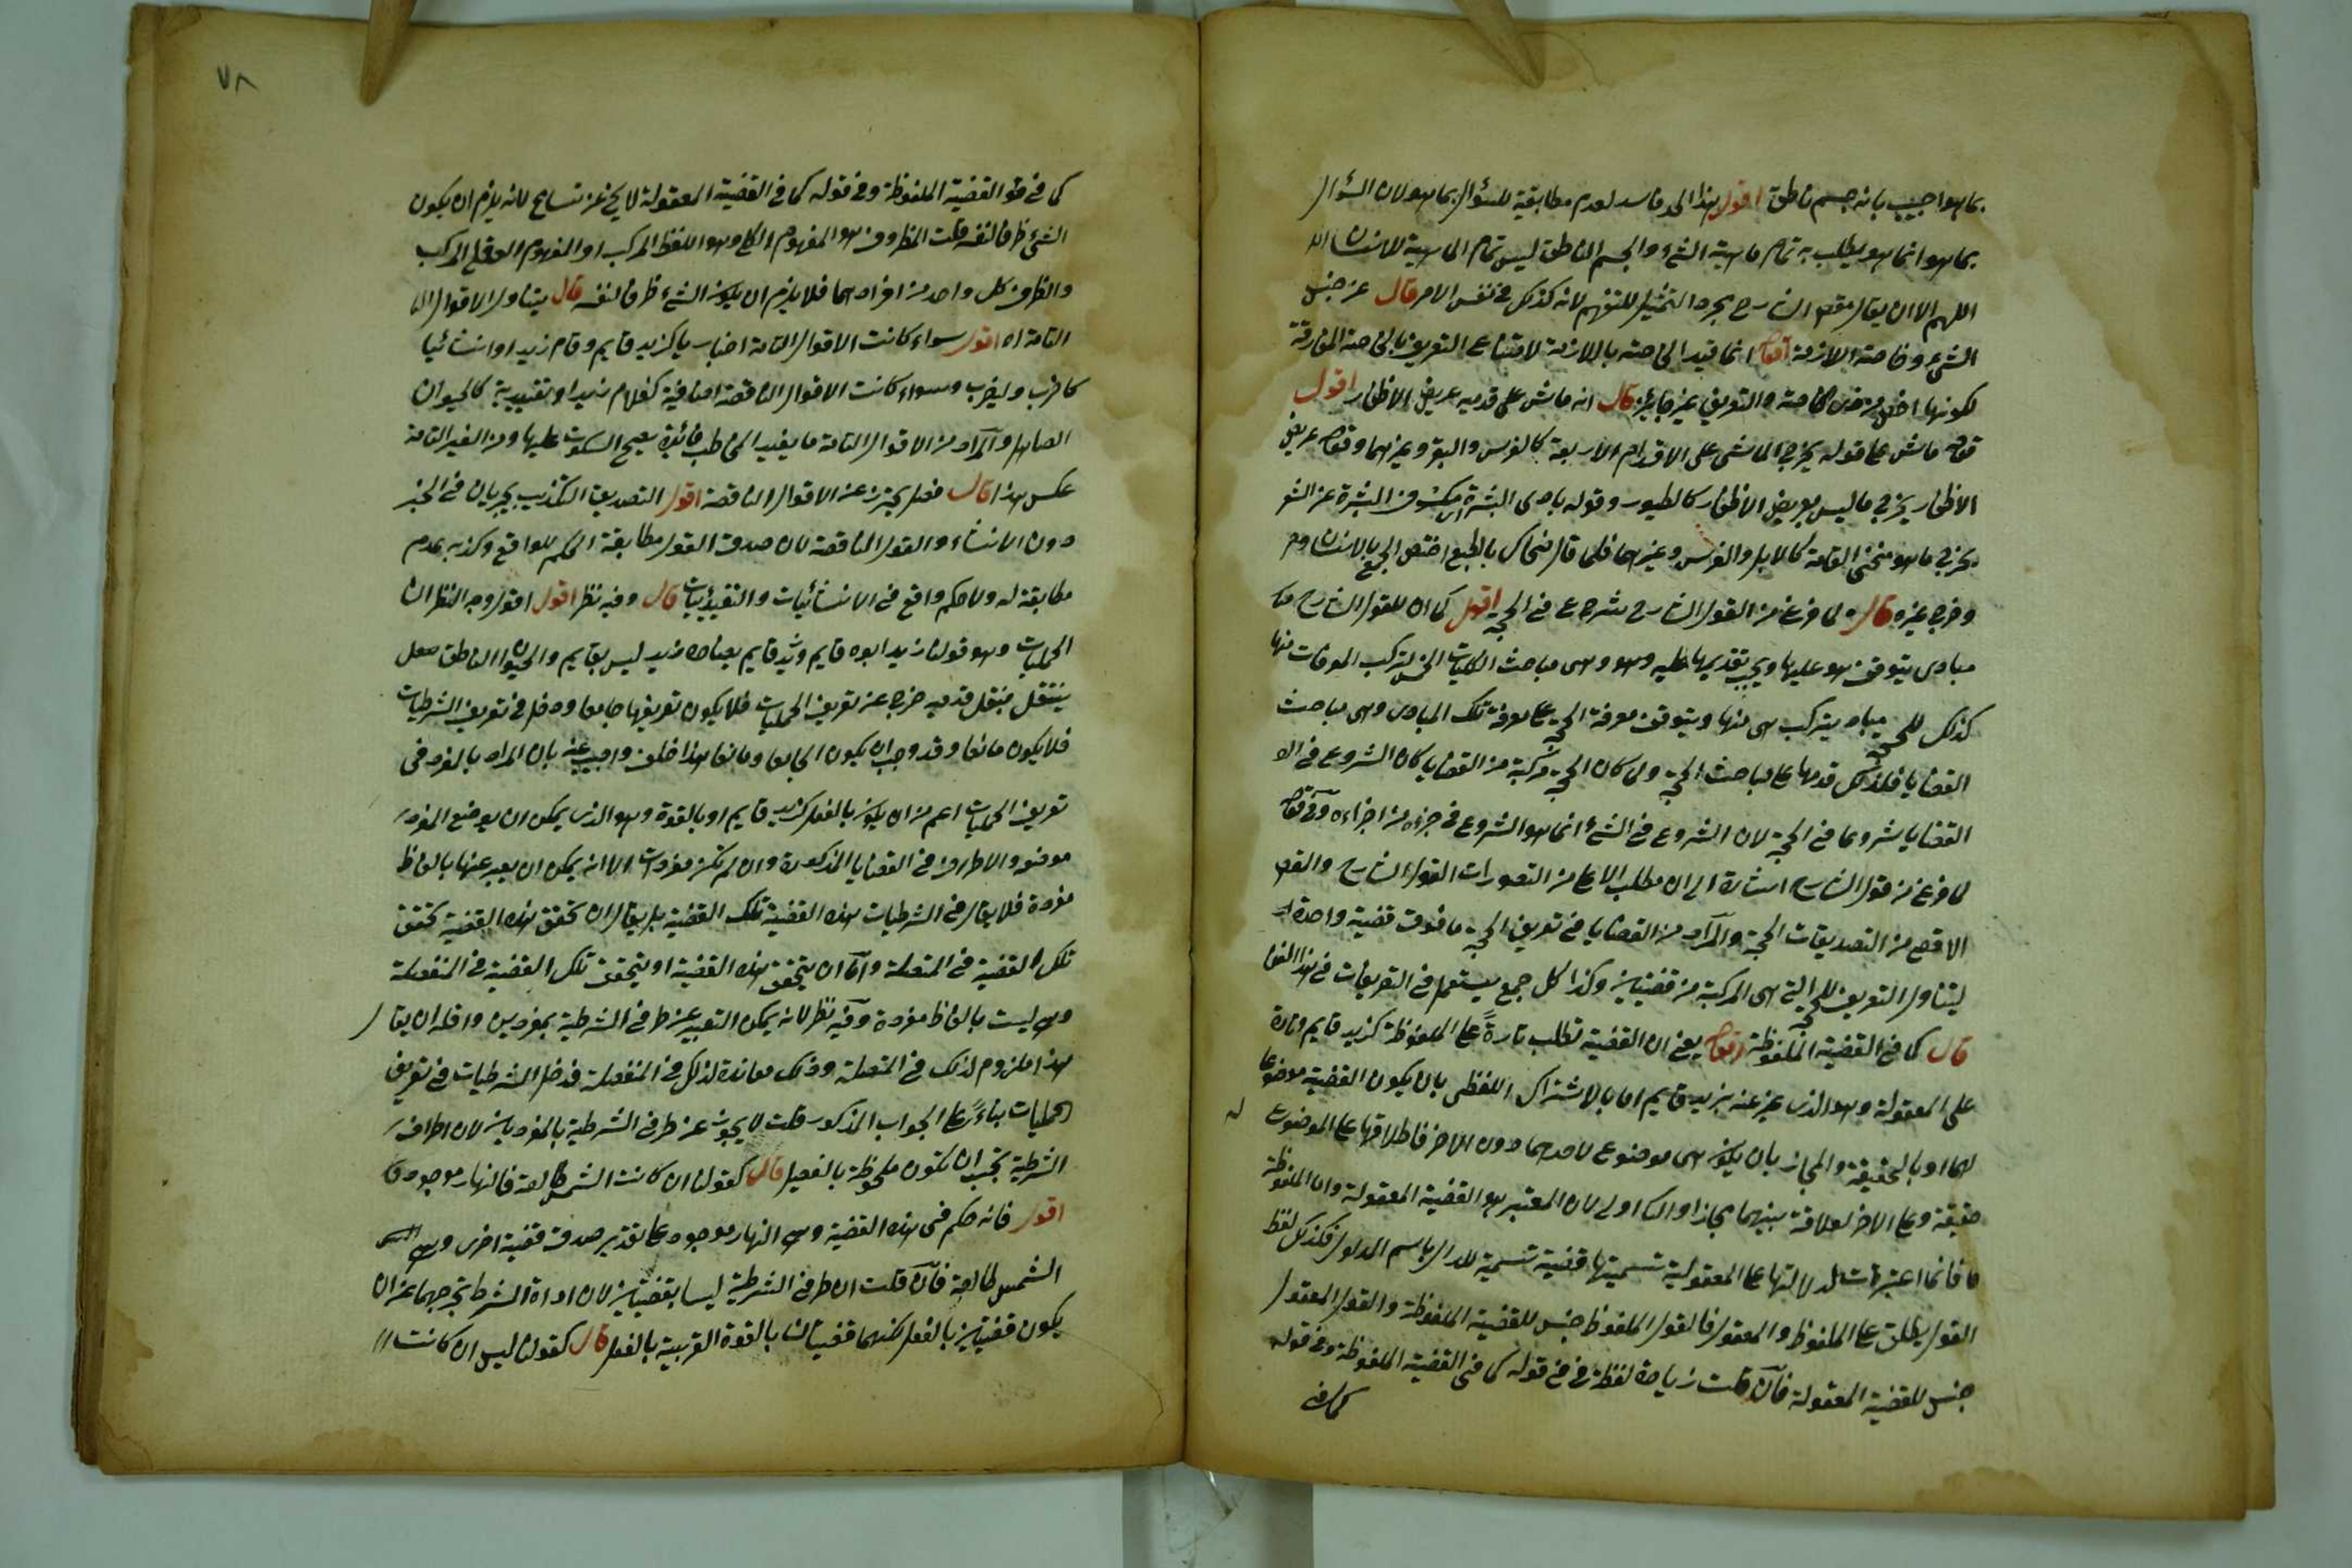 بما هو اجيب بانه جسم ناطق اقول هذا الحد فاسد لعدم مطابقته للسؤال بما هو لان السؤال
بما هو انما هو يطلب به تمام ماهية الشئ والجسم الناطق ليس تمام الماهية للانسان
اللهم الا ان يقال مقصد الشارح مجرد التمثيل للتفهم لانه كذلك في نفس الامر قال عن جنس
الشئ وخاصته اللازمة اقول انما قيد الخاصة باللازمة لامتناع التعريف بالخاصة المفارقة
لكونها اخص من ذي الخاصة والتعريف غير جايز قال انه ماش على قدميه عريض الاظفار اقول
قوله ماش على قوله يخرج الماشى على الاقدام الاربعة كالفرس والبقر وغيرهما وقوله عريض
الاظفار يخرج ما ليس بعريض الاظفار كالطيور وقوله بادى البشرة اى مكشوف البشرة عن الشعر
يخرج ما هو منحنى القامة كالابل والفرس وغيرهما فلما قال ضحاك بالطبع اختص الجميع بالانسان
وخرج غيره قال لما فرغ من القول الشارح شرع في الحجة اقول كما ان للقول الشارح
مبادى يتوقف هو عليها ويجب تقديمها عليه وهو وهى مباحث الكليات الخمس لتركب المعرفات منها
كذلك للحجة مباد يتركب هى منها ويتوقف معرفة الحجة على معرفة تلك المبادى وهى مباحث
القضايا فلذلك قدمها على مباحث الحجة ولما كان الحجة مركبة من القضايا كان الشروع في
القضايا شروعا في الحجة لان الشروع في الشئ انما هو الشروع في جزء من اجزاءه وفى قوله
لما فرغ من قول الشارح اشارة الى ان مطلب الاعلى من التصورات القول الشارح والقصد
الاقصى من التصديقات الحجة والمراد من القضايا في تعريف الحجة ما فوق قضية واحدة
ليتناول التعريف للحجة التي هى المركبة من قضيتين وكذا كل جمع يستعمل في التعريفات في هذا الفن
قال كما في القضية الملفوظة اقول يعنى ان القضية تطلب تارة على الملفوظة كزيد قايم وتارة
على المعقولة وهو الذى عبر عنه بزيد قايم اما بالاشتراك اللفظى بان يكون القضية موضوعا
لهما او بالحقيقة والمجاز بان يكون هى موضوع لاحدهما دون الاخر فاطلاقها على الموضوع له
حقيقة وعلى الاخر لعلاقة بينهما مجازا والثانى اولى لان المعتبر هو القضية المعقولة واما الملفوظة
فانما اعتبرت لدلالتها على المعقولية تسميتها قضية تسمية للدال باسم المدلول فكذلك لفظ
القول يطلق على الملفوظ والمعقول فالقول الملفوظ جنس للقضية الملفوظة والقول المعقول
جنس للقضية المعقولة فان قلت زيادة لفظة في في قوله كما في القضية الملفوظة وفى قوله
كما في
٧٨
كما في قو القضية الملفوظة وفى قوله كما في القضية المعقولة لا يخ عن تسامح لانه يلزم ان يكون
الشئ ظرفا لنفسه قلت المظروف هو المفهوم الكلى وهو اللفظ المركب او المفهوم العقلى المركب
والظرف كل واحد من افرادهما فلا يلزم ان يكون الشئ ظرفا لنفسه قال يتناول الاقوال
التامة اه اقول سواء كانت الاقوال التامة اخباريا كزيد قايم وقام زيد او انشائيا
كاضرب وليضرب وسواء كانت الاقوال الناقصة اضافية كغلام زيد او تقييدية كالحيوان
الصاهل والمراد من الاقوال التامة ما يفيد المخاطب فائدة يصح السكوت عليها ومن الغير التامة
عكس هذا قال فصل يحترز عن الاقوال الناقصة اقول التصديق التكذيب يجريان في الخبر
دون الانشاء والقول الناقصة لان صدق القول مطابقة الحكم للواقع وكذبه بعدم
مطابقته له ولا حكم واقع في الانشائيات والتقييديات قال وفيه نظر اقول اقول وجه النظر ان
الحمليات وهو قولنا زيد ابوه قايم وزيد قايم يضاده زيد ليس بقايم والحيوان الناطق
ينتقل بنقل قدميه خرج عن تعريف الحمليات فلا يكون تعريفها جامعا ودخل في تعريف الشرطيات
فلا يكون مانعا وقد وجب ان يكون الجامعا ومانعا هذا خلف واجيب عنه بان المراد بالمفرد في
تعريف الحمليات اعم من ان يكون بالفعل كزيد قايم او بالقوة وهو الذى يمكن ان يوضع المفرد
موضعه والاطراف في القضايا المذكورة وان لم تكن مفردات الا انه يمكن ان يعبر عنها بالفاظ
مفردة فلا يقال في الشرطيات هذه القضية تلك القضية بل يقال ان تحقق هذه القضية تحقق
تلك القضية في المتصلة واما ان يتحقق هذه القضية او يتحقق تلك القضية في المنفصلة
وهى ليست بالفاظ مفردة وفيه نظر لانه يمكن التعبير عن طرفى الشرطية بمفردين واقله ان يقال
هذا ملزوم لذلك في المتصلة وذلك معاندة لذلك في المنفصلة فدخل الشرطيات في تعريف
الحمليات بناء على الجواب المذكور قلت لا يجوز عن طرفى الشرطية بالمفردين لان اطراف
الشرطية يجب ان تكون ملحوظة بالفعل قال كقولنا ان كانت الشمس طالعة فالنهار موجود
اقول فانه حكم في هذه القضية وهى النهار موجود على تقدير صدق قضية اخرى وهى
الشمس طالعة فان قلت ان طرفى الشرطية ليسا بقضيتين لان اداة الشرط تخرجهما عن ان
يكون قضيتين بالفعل لكنهما قضيتان بالقوة القريبة بالفعل قال كقولنا ليس ان كانت